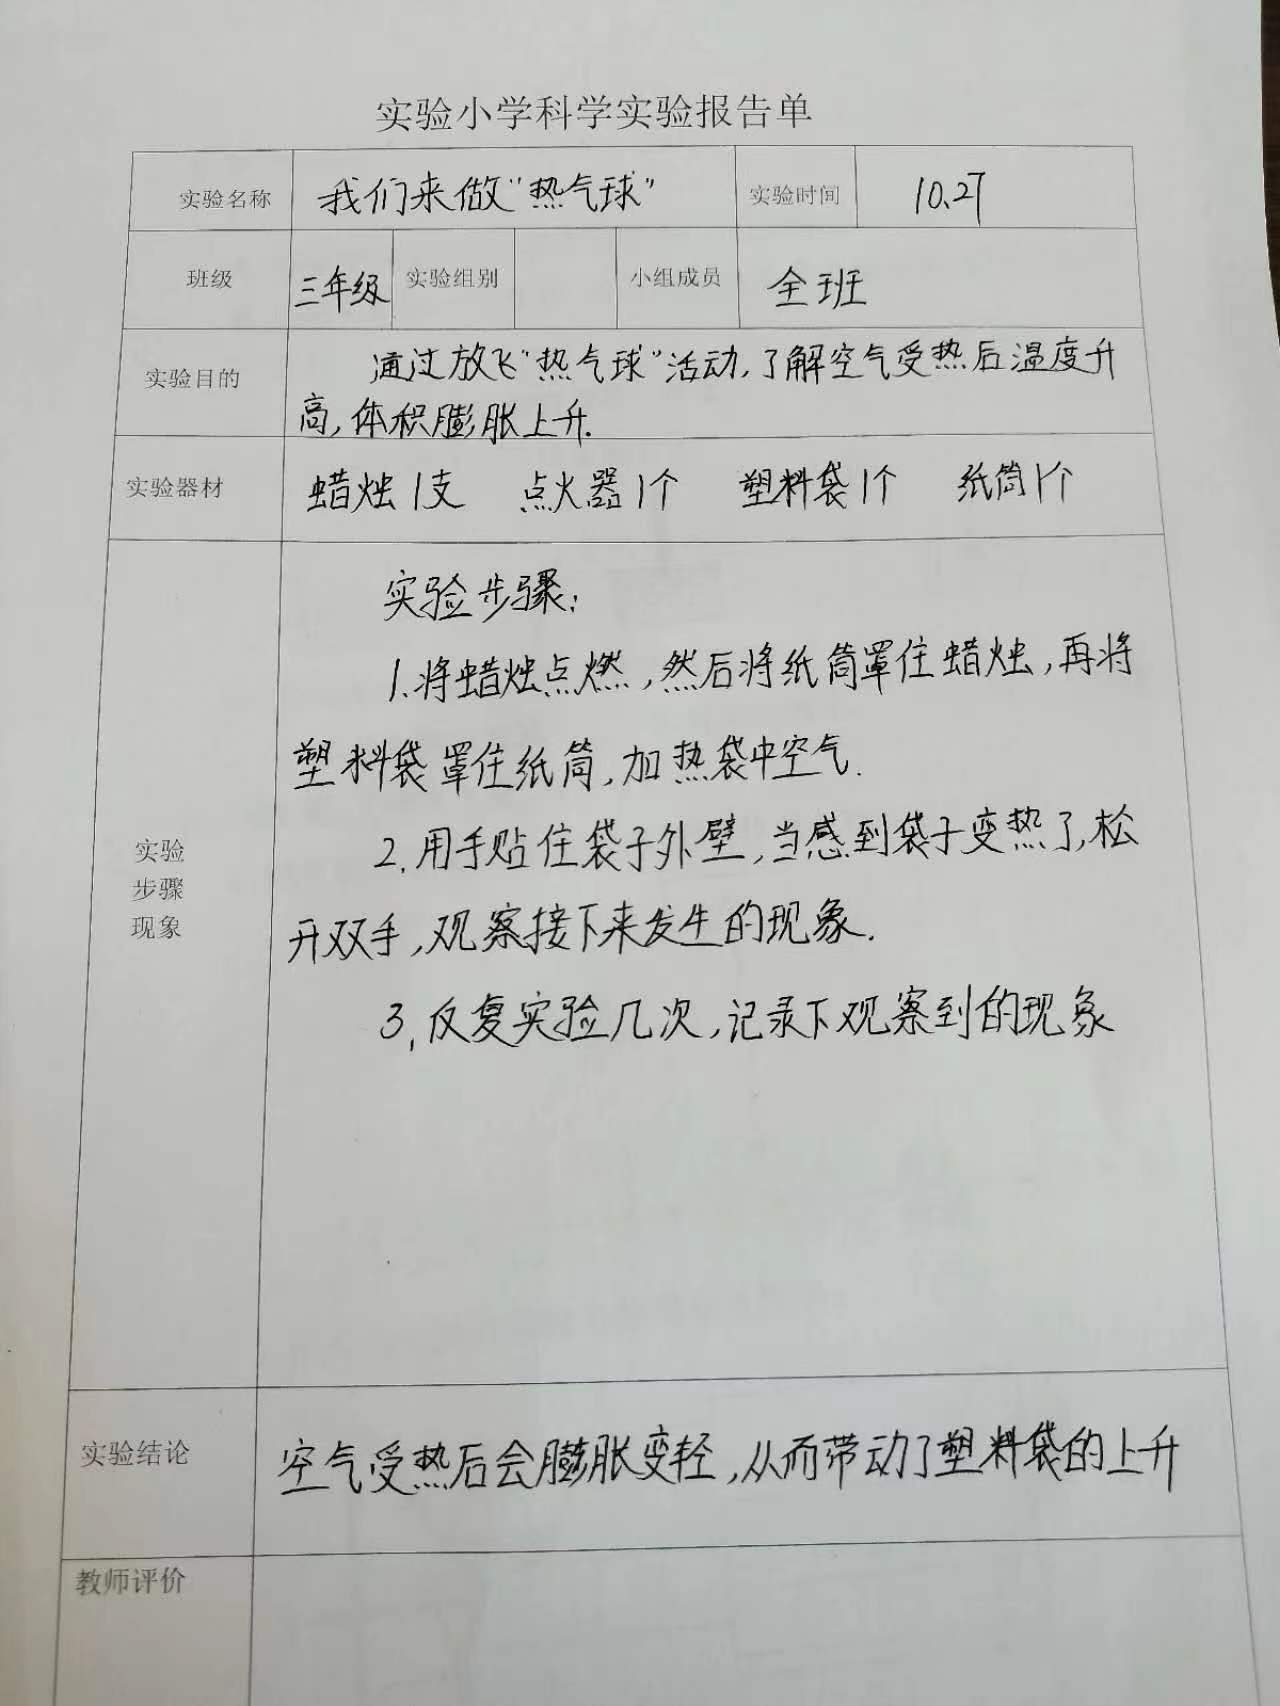 实验小学科学实验报告单
实验名称 我们来做“热气球” 实验时间 10.27
班级 三年级 实验组别 小组成员 全班
实验目的 通过放飞“热气球”活动,了解空气受热后温度升
高,体积膨胀上升.
实验器材 蜡烛1支 点火器1个 塑料袋1个 纸筒1个
实验步骤:
1.将蜡烛点燃,然后将纸筒罩住蜡烛,再将
塑料袋罩住纸筒,加热袋中空气.
2.用手贴住袋子外壁,当感到袋子变热了,松
开双手,观察接下来发生的现象.
3,反复实验几次,记录下观察到的现象
实验
步骤
现象
实验结论 空气受热后会膨胀变轻,从而带动了塑料袋的上升
教师评价